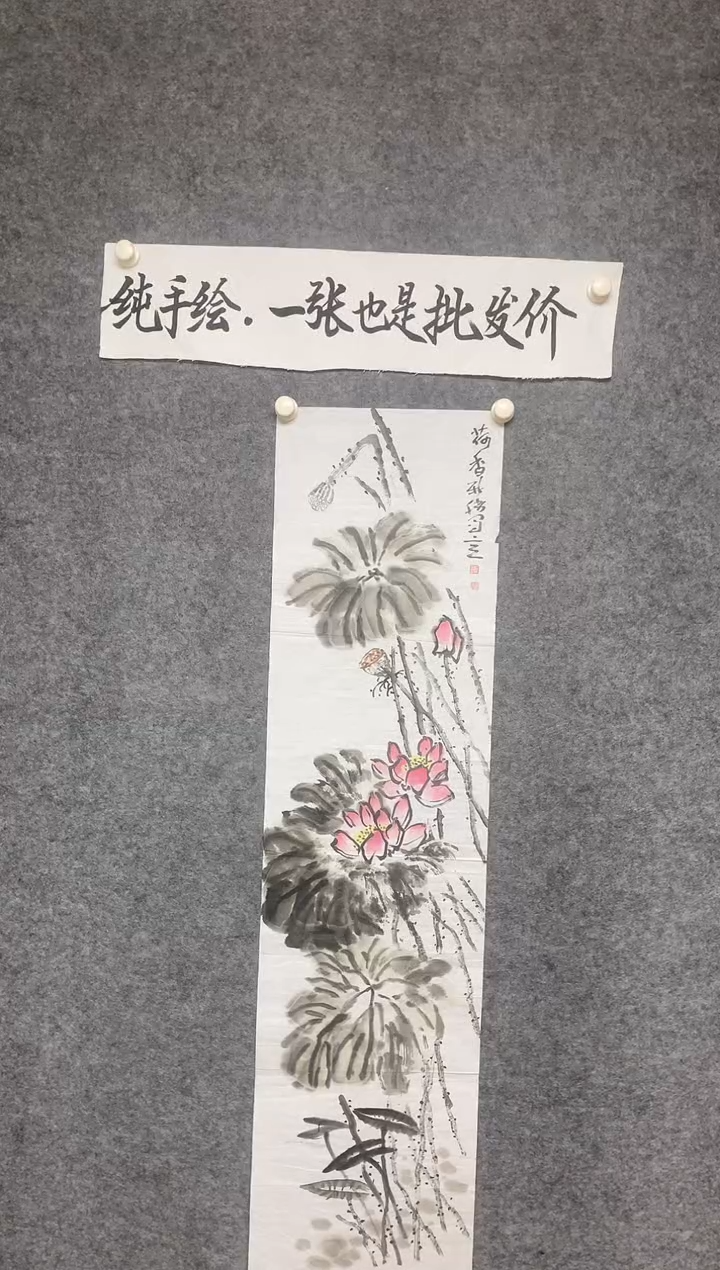 纯手绘.一张也是批发价
荷香